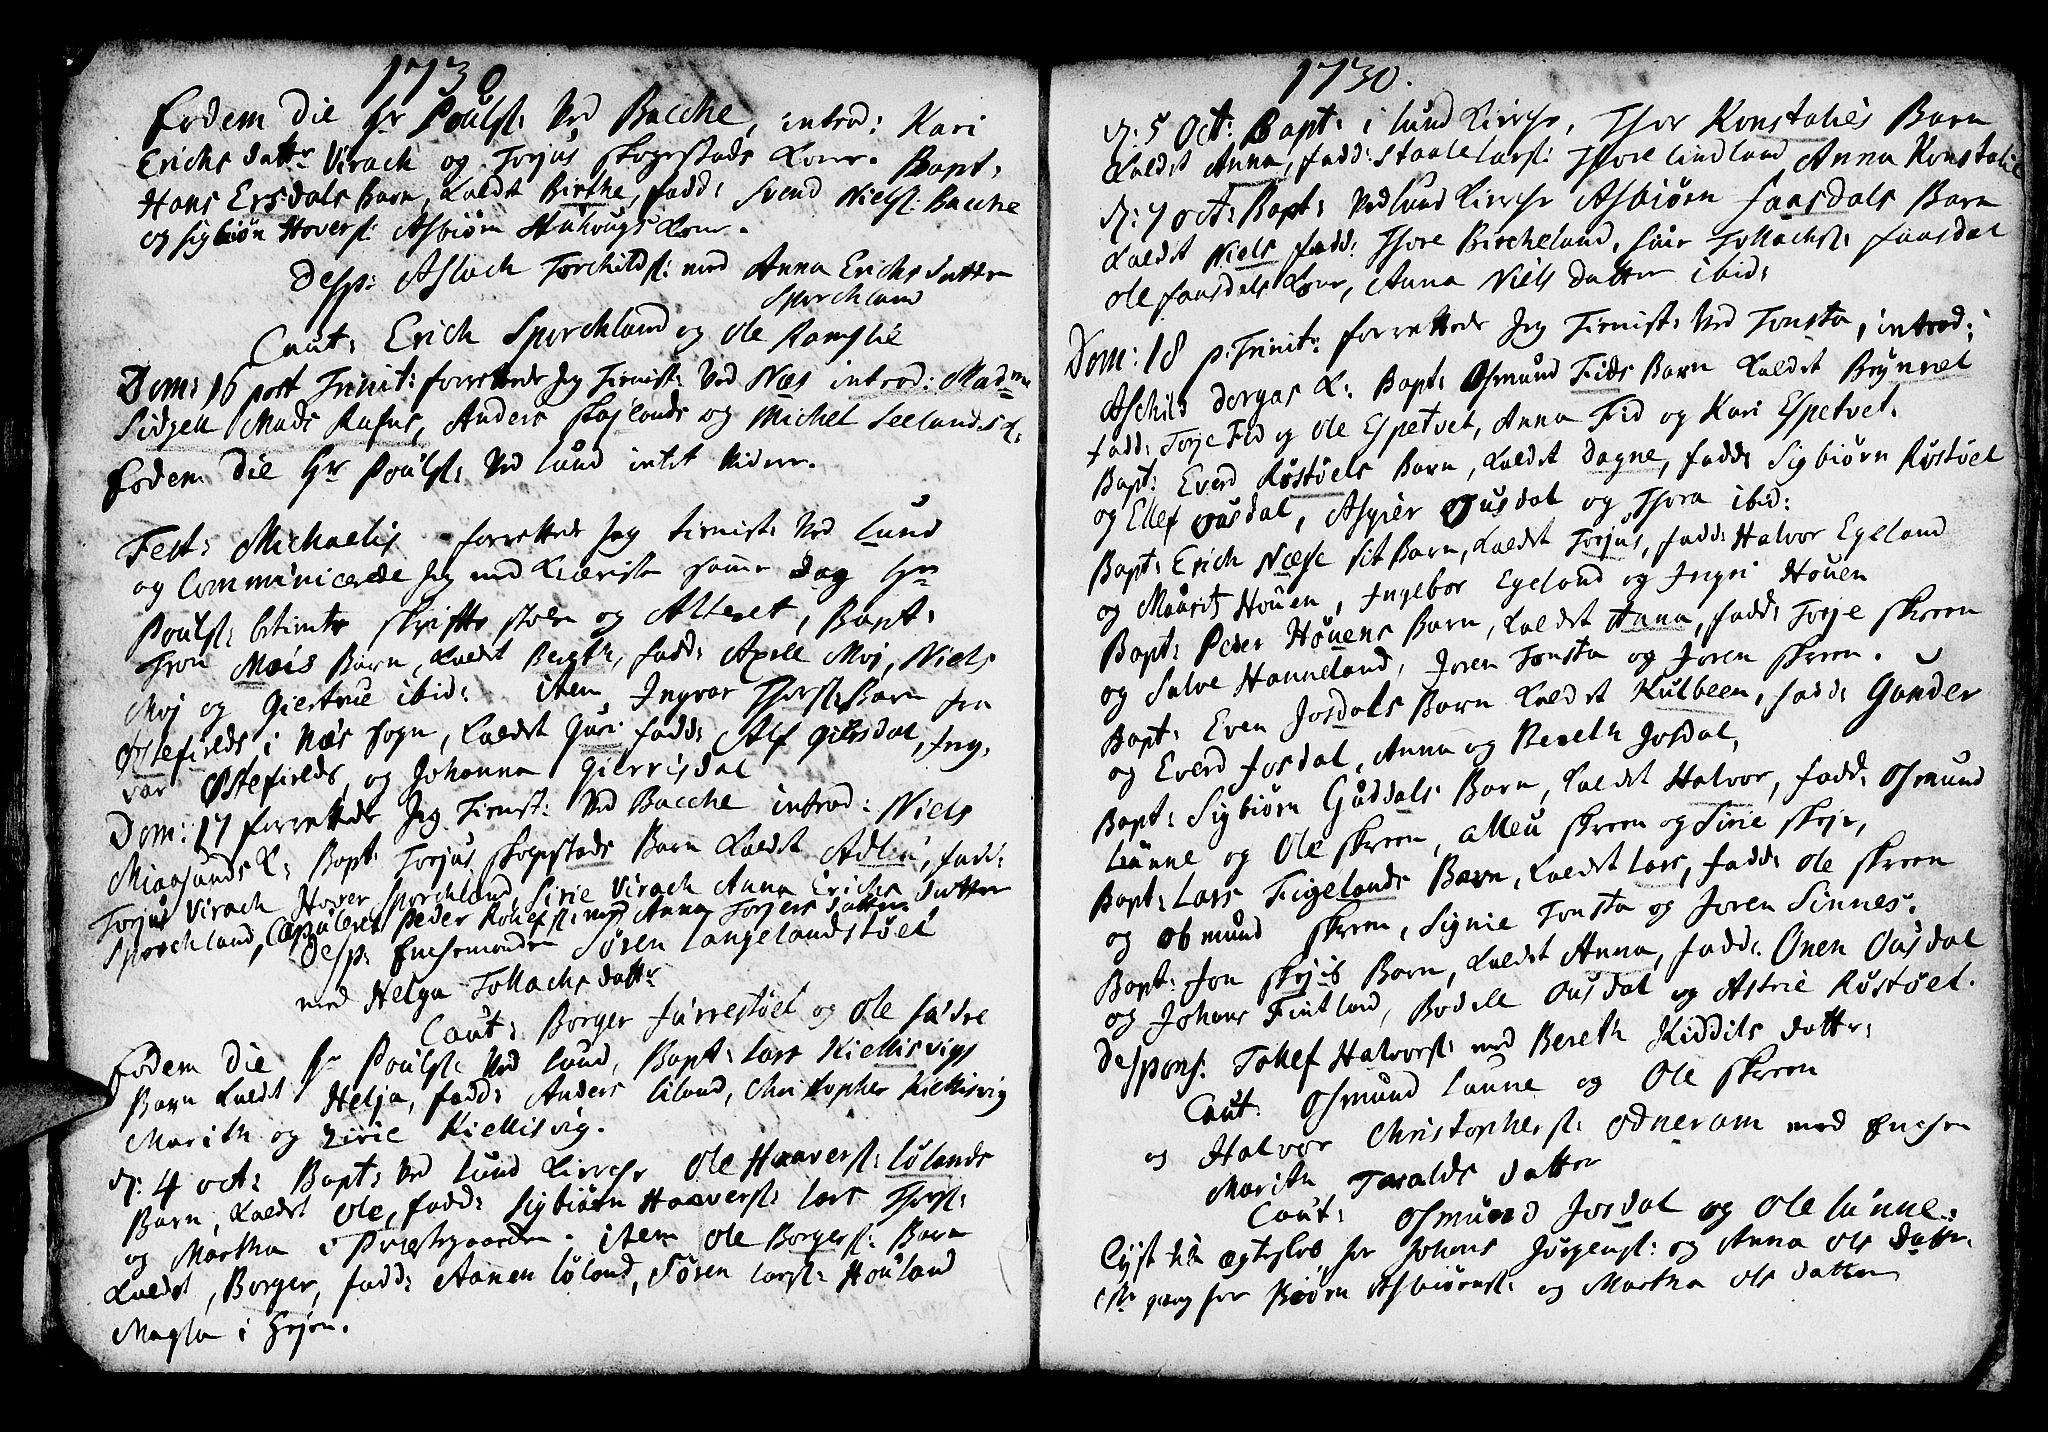 1730
Eodem Die Hr Poulss: Ved Bacche, introd: Kari
Erichs datter Virach og Torjus Skogestads Kone. Bapt:
Hans Ersdals Barn, Kaldet Birthe, fadd: Svend Nielss: Bacche
og Sigbiøn Hoverss: Asbiørn Kone.
Desp: Aslach Torchildss: med Anna Erichs datter
Sporchland
Caut: Erich Sporchland og Ole Ramslie
Dom: 16 post Trinit: forrettede Jeg Tienist: Ved Næs introd: Mad
Sidzell Mads Rafns, Anders Skojlands og Michel Seelands K:
Eodem Die Hr Poulss: Ved Lund intet Videre.
Fest: Michaelis forrettede Jeg tienist: Ved Lund
og Communicerede Jeg med Kiæriste samme Dag Hr
Poulss: betiente Skriftestolen og Alteret, Bapt:
Tron Mois Barn, Kaldet Bereth, fadd: Axell Moj, Niels
Moj og Giertrue ibid: item Ingvar Thorss: Barn fra
Østefields i Næs Sogn, Kaldet Guri fadd: Alf Girisdal, Ing-
var Østefields, og Johanna Gierrisdal
Dom: 17 forrettede Jeg Tienist: Ved Bacche introd: Niels
Miaasunds K: Bapt: Torjus Skogestads Barn Kaldet Adlu, fadd:
Torjus Virach Hover Sporchland, Sirie Virach Anna Erichs datter
Sporchland, Copuleret Peder Rolefss: med Anna Torjers datter
Desp: Enchemanden Søren Langelandstøel
med Helga Tollachs datter
Caut: Borger Furrestøel og Ole Sædre
Eodem Die Hr Poulss: Ved Lund, Bapt: Lars Kiellisvigs
Barn Kaldet Helja, fadd: Anders Eiland, Christopher Kiellisvig
Marith og Zirie Kiellisvig.
d: 4 oct: Bapt: Ved Lund Kirche Ole Haaverss: Lølands
Barn, Kaldet Ole, fadd: Sigbiørn Haaverss: Lars Thorss:
og Martha i Præstegaarden. item Ole Borgerss: Barn
Kaldet, Borger, fadd: Aanen Løland, Søren Larss: Houland
Magla i Hejen.
1730.
d: 5 Oct: Bapt: i Lund Kirche, Thor Konstalies Barn
Kaldet Anna, fadd: Staale Larss: Thore Lindland Anna Konstalie
d: 7 oct: Bapt: Ved Lund Kirche Asbiørn Faasdals Barn
Kaldet Niels fadd: Thore Bircheland, Siur Tollachss: Faasdal
Ole Faasdals Kone, Anna Niels datter ibid:
Dom: 18 p: Trinit: forrettede Jeg Tienist: Ved Tonsta, introd:
Aschild Dorgas K: Bapt: Osmund Fids Barn Kaldet Brynnel
fadd: Torje Fid og Ole Espetvet, Anna Fid og Kari Espetvet.
Bapt: Everd Røstøels Barn, Kaldet Dagne, fadd: Sigbiørn Røstøel
og Ellef Ousdal, Asgier Ousdal og Thora ibid:
Bapt: Erich Næse sit Barn, Kaldet Torjus, fadd: Halvor Egeland
og Maurits Houen, Ingebor Egeland og Ingri Houen
Bapt: Peder Houens Barn, Kaldet Anna, fadd: Torje Skreen
og Salve Hanneland, Joren Tonsta og Joren Skreen.
Bapt: Even Josdals Barn Kaldet Kulbeen, fadd: Gunder
og Everd Josdal, Anna og Bereth Josdal,
Bapt: Sigbiørn Guddals Barn, Kaldet Halvor, fadd: Osmund
Lunne og Ole Skreen, Alleu Skreen og Sirie Skeje,
Bapt: Lars Figelands Barn, Kaldet Lars, fadd: Ole Skreen
og Obmund Skreen, Signie Tonsta og Joren Sinnes.
Bapt: Jon Skejes Barn, Kaldet Anna, fadd: Onen Ousdal
og Johans Fintland, Bodell Ousdal og Astrie Røstøel.
Despons: Tollef Halvorss: med Bereth Kiddils datter:
Caut: Osmund Lunne og Ole Skreen
og Halvor Christopherss: Odneram med Enchen
Marithe Taralds datter
Caut: Osmund Josdal og Ole Lunne:
Lyst til ægteskab for Johans Jørgenss: og Anna Ols datter.
1ste gang for Biørn Asbiørnss: og Martha Ols datter